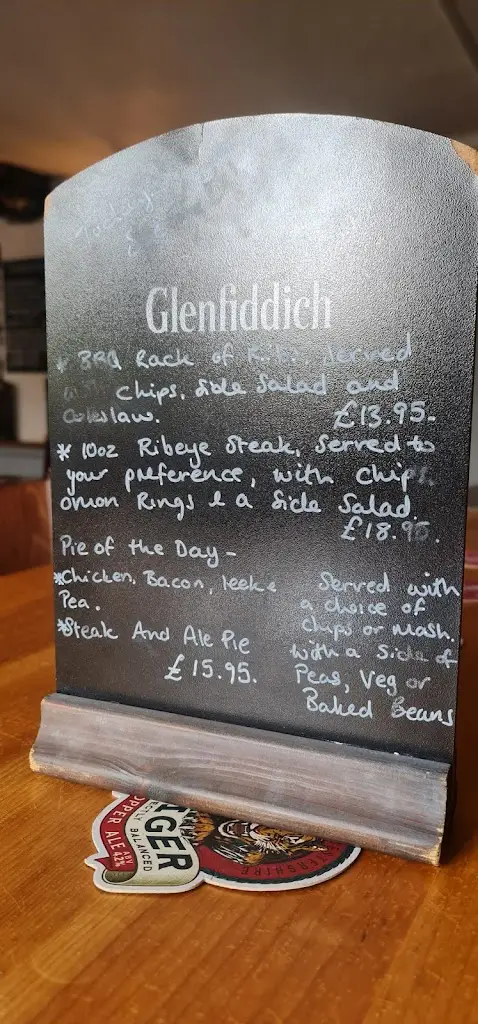 Today's
Glenfiddich
* BBQ Rack of Ribs, Served
with Chips, Side Salad and
Coleslaw. £13.95-
* 10oz Ribeye Steak, Served to
your preference, with Chips,
onion Rings & a Side Salad.
£18.95.
Pie of the Day -
*Chicken, Bacon, leek &
Pea.
*Steak And Ale Pie
£15.95.
Served with
a choice of
chips or mash.
with a Side of
Peas, Veg or
Baked Beans
GER
BALANCED
PPER ALE
ABV
4.2%